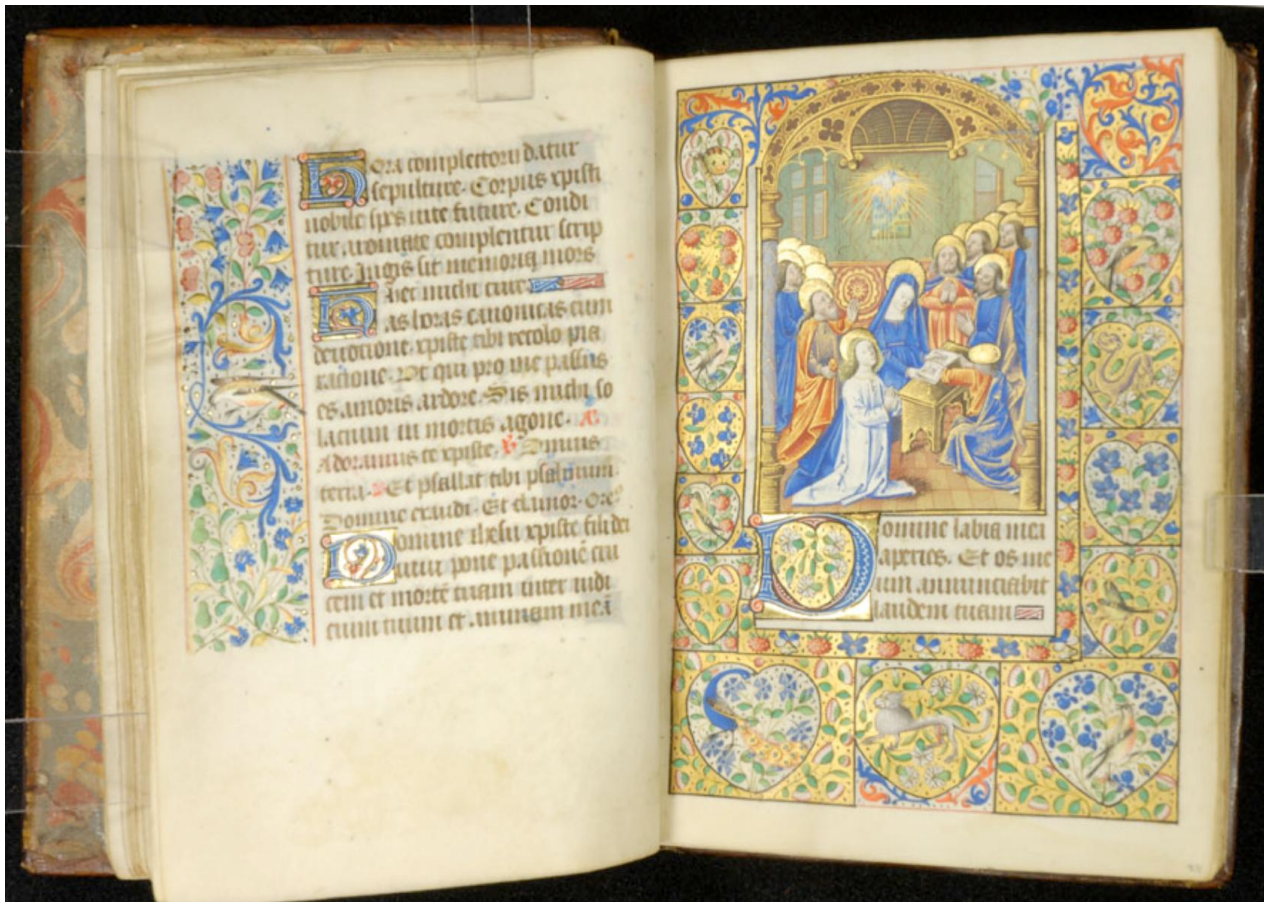 Hora completorii datur
sepulture. Corpus xpisti
nobile spes vite future. Condi
tur aromate complentur scrip
ture Jugis sit memoria mors
hec michi cure
Has horas canonicas cum
deuotione. xpiste tibi recolo pia
racione. Vt qui pro me passus
es. amoris ardore. Sis michi so
lacium in mortis agone.
Adoramus te xpiste. Omnis
terra. Et psallat tibi psalmum
Domine exaudi. Et clamor. Oro
Domine ihesu xpiste fili dei
viui pone passionē cru
cem et mortē tuam inter iudi
cium tuum et animam meā
Domine labia mea
aperies. Et os me
um annunciabit
laudem tuam